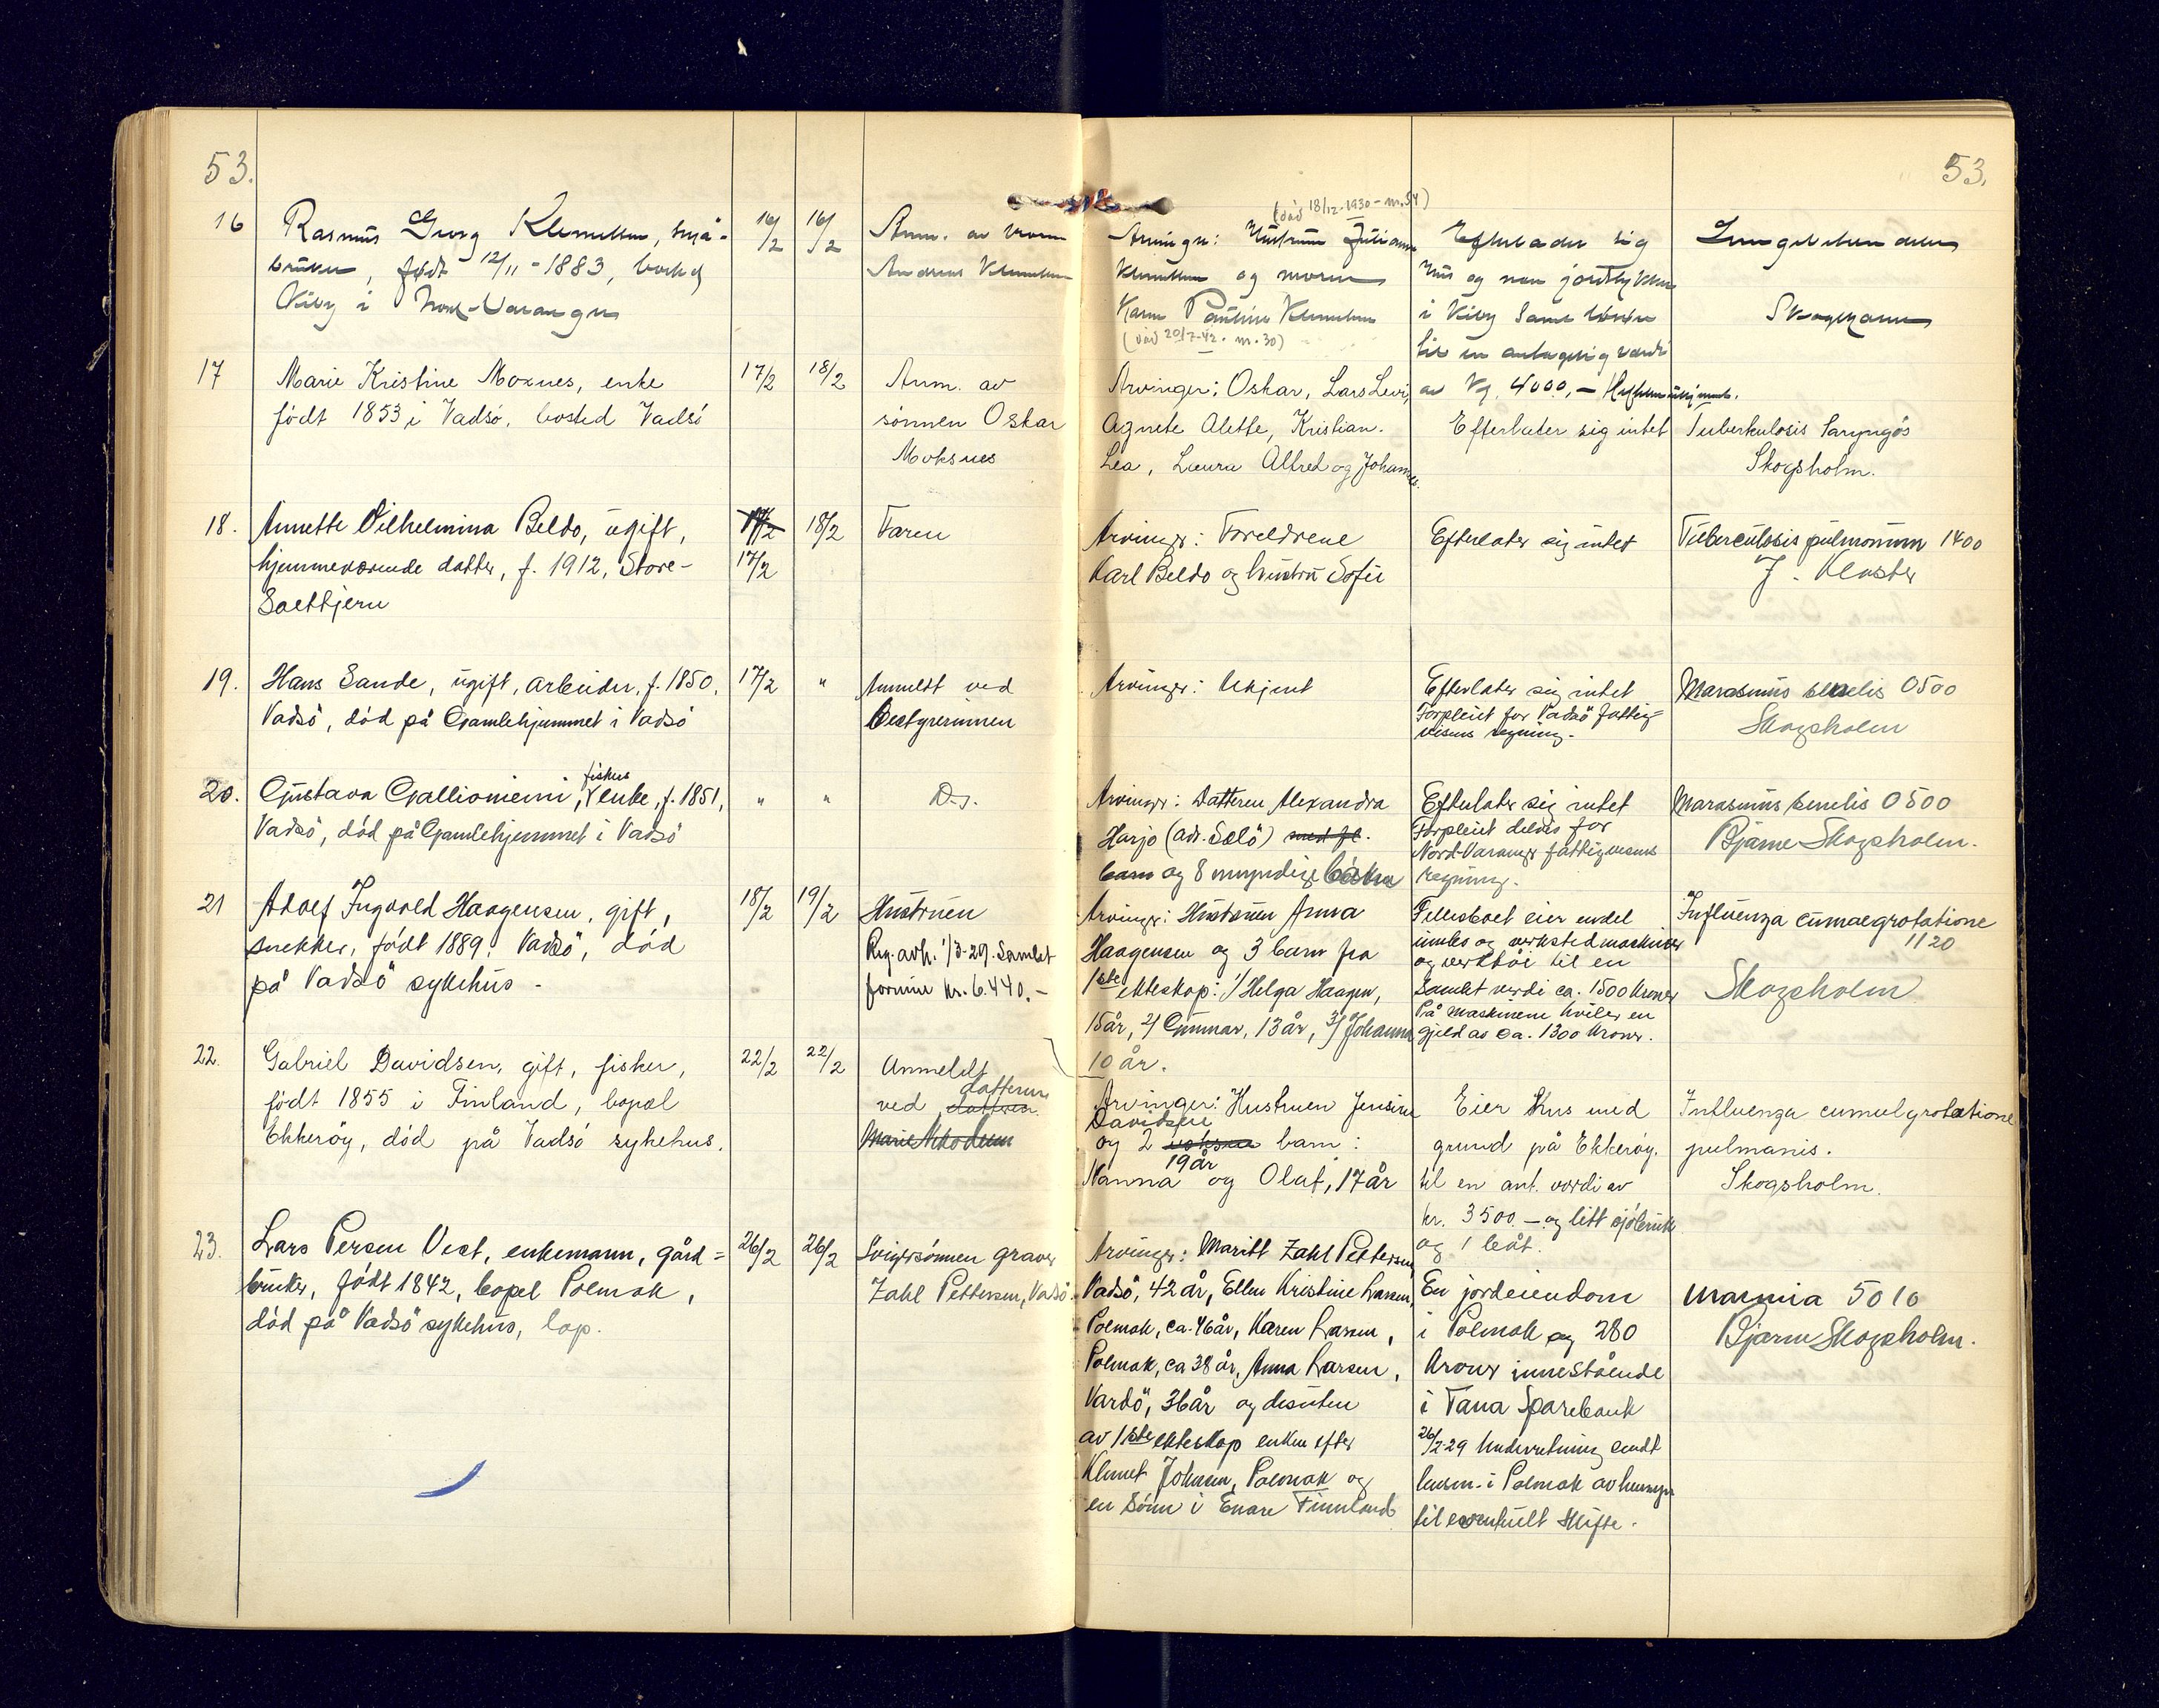 53.
53.
16
Rasmus Georg Klemetsen, små-
bruker, født 12/11-1883, bosted
Kiby i Nord-Varanger
16/2
16/2
Anm. av broren
Andreas Klemetsen
(død 18/12-1930-m.54)
Arvinger: Hustruen Julianne
Klemetsen og moren
Karen Pauline Klemetsen
(død 20/7-42. m.30)
Efterlater sig
hus og noen jordstykker
i Kiby samt løsøre
til en antagelig verdi
av kr. 4000,-
Lungebetendelse
Skogsholm
17
Marie Kristine Moxnes, enke
født 1853 i Vadsö, bosted Vadsö
17/2
18/2
Anm. av
sönnen Oskar
Moksnes
Arvinger: Oskar, Lars Levi,
Agnete Alette, Kristian.
Lea, Laura Alfred og Johannes.
Efterlater sig intet
Tuberkulosis laryngös
Skogsholm.
18.
Annette Vilhelmina Beldo, ugift,
hjemmeværende datter, f. 1912, Store-
Saltbjern
17/2
17/2
18/2
Faren
Arvinger: Foreldrene
Karl Beldo og hustru Sofie
Efterlater sig intet
Tuberculosis pulmonum 1400
J. Kloster
19.
Hans Sande, ugift, arbeider, f. 1850,
Vadsö, död på Gamlehjemmet i Vadsö
17/2
"
Anmeldt ved
Bestyrerinnen
Arvinger: Ukjent
Efterlater sig intet
Forpleiet for Vadsö fattig-
vesens regning.
Marasmus senelis 0500
Skogsholm
20.
fiskes
Gustava Gallioniemi, enke, f. 1851,
Vadsö, död på Gamlehjemmet i Vadsö
"
"
D.s.
Arvinger: Datteren Alexandra
Harjo (adr. Salö) med fl.
barn og 8 umyndige barn
Efterlater sig intet
Forpleiet deldis for
Nord-Varanger fattigvesens
regning.
Marasmus senelis 0500
Bjarne Skogsholm.
21
Adolf Ingvold Haagensen, gift,
snekker, født 1889, Vadsö, död
på Vadsö sykehus.
18/2
19/2
Hustruen
Reg. avh. 1/3-29. Samlet
formue kr. 6.440.-
Arvinger: Hustruen Anna
Haagensen og 3 barn fra
1ste ekteskap: 1/ Helga Haagen,
15år, 2/ Gunnar, 13år, 3/ Johanna
10 år.
Fellesboet eier endel
innbo og verkstedmaskiner
og verktöi til en
samlet verdi ca. 1500 kroner
På maskinene hviler en
gjeld av ca. 1300 kroner.
Influenza cumaegrotatione
1120
Skogsholm
22.
Gabriel Davidsen, gift, fisker,
født 1855 i Finland, bopæl
Ekkeröy, död på Vadsö sykehus.
22/2
22/2
Anmeldt
datteren
ved datteren
Marie Nikodem
Arvinger: Hustruen Jensine
Davidsen
og 2 voksne barn:
19år
Nanna og Olaf, 17år
Eier hus med
grund på Ekkeröy.
til en ant. verdi av
kr. 3500.- og litt sjöbruk
og 1 båt.
Influenza cumulgrotatione
pulmanis.
Skogsholm.
23.
Lars Persen Vest, enkemann, gård=
bruker, født 1842, bopel Polmak,
död på Vadsö sykehus, lap.
26/2
26/2
Svigersönnen graver
Zahl Pettersen, Vadsö.
Arvinger: Maritt Zahl Pettersen
Vadsö, 42år, Ellen Kristine Larsen,
Polmak, ca. 46år, Karen Larsen,
Polmak, ca 38 år, Anna Larsen,
Vardö, 36år og desuten
av 1ste ekteskap enken efter
Klemet Johnsen, Polmak og
en sönn i Enare Finnland
En jordeiendom
i Polmak og 280
kroner innestående
i Tana Sparebank
26/2-29 Underretning sendt
lensm. i Polmak av hensyn
til eventuelt skifte.
5010
Bjarne Skogsholm.